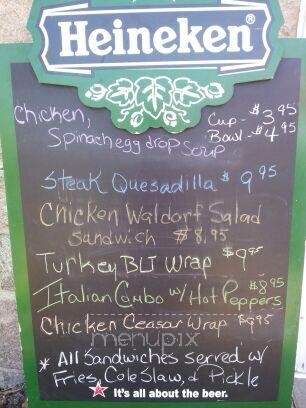 Heineken®
Chicken, Cup - $3.95
Spinach egg drop Soup Bowl - $4.95
Steak Quesadilla $9.95
Chicken Waldorf Salad
Sandwich $8.95
Turkey BLT Wrap $9.95
Italian Combo w/ Hot Peppers $8.95
Chicken Ceasar Wrap $9.95
menupix
* All Sandwiches served w/
Fries, Cole Slaw, & Pickle
It's all about the beer.